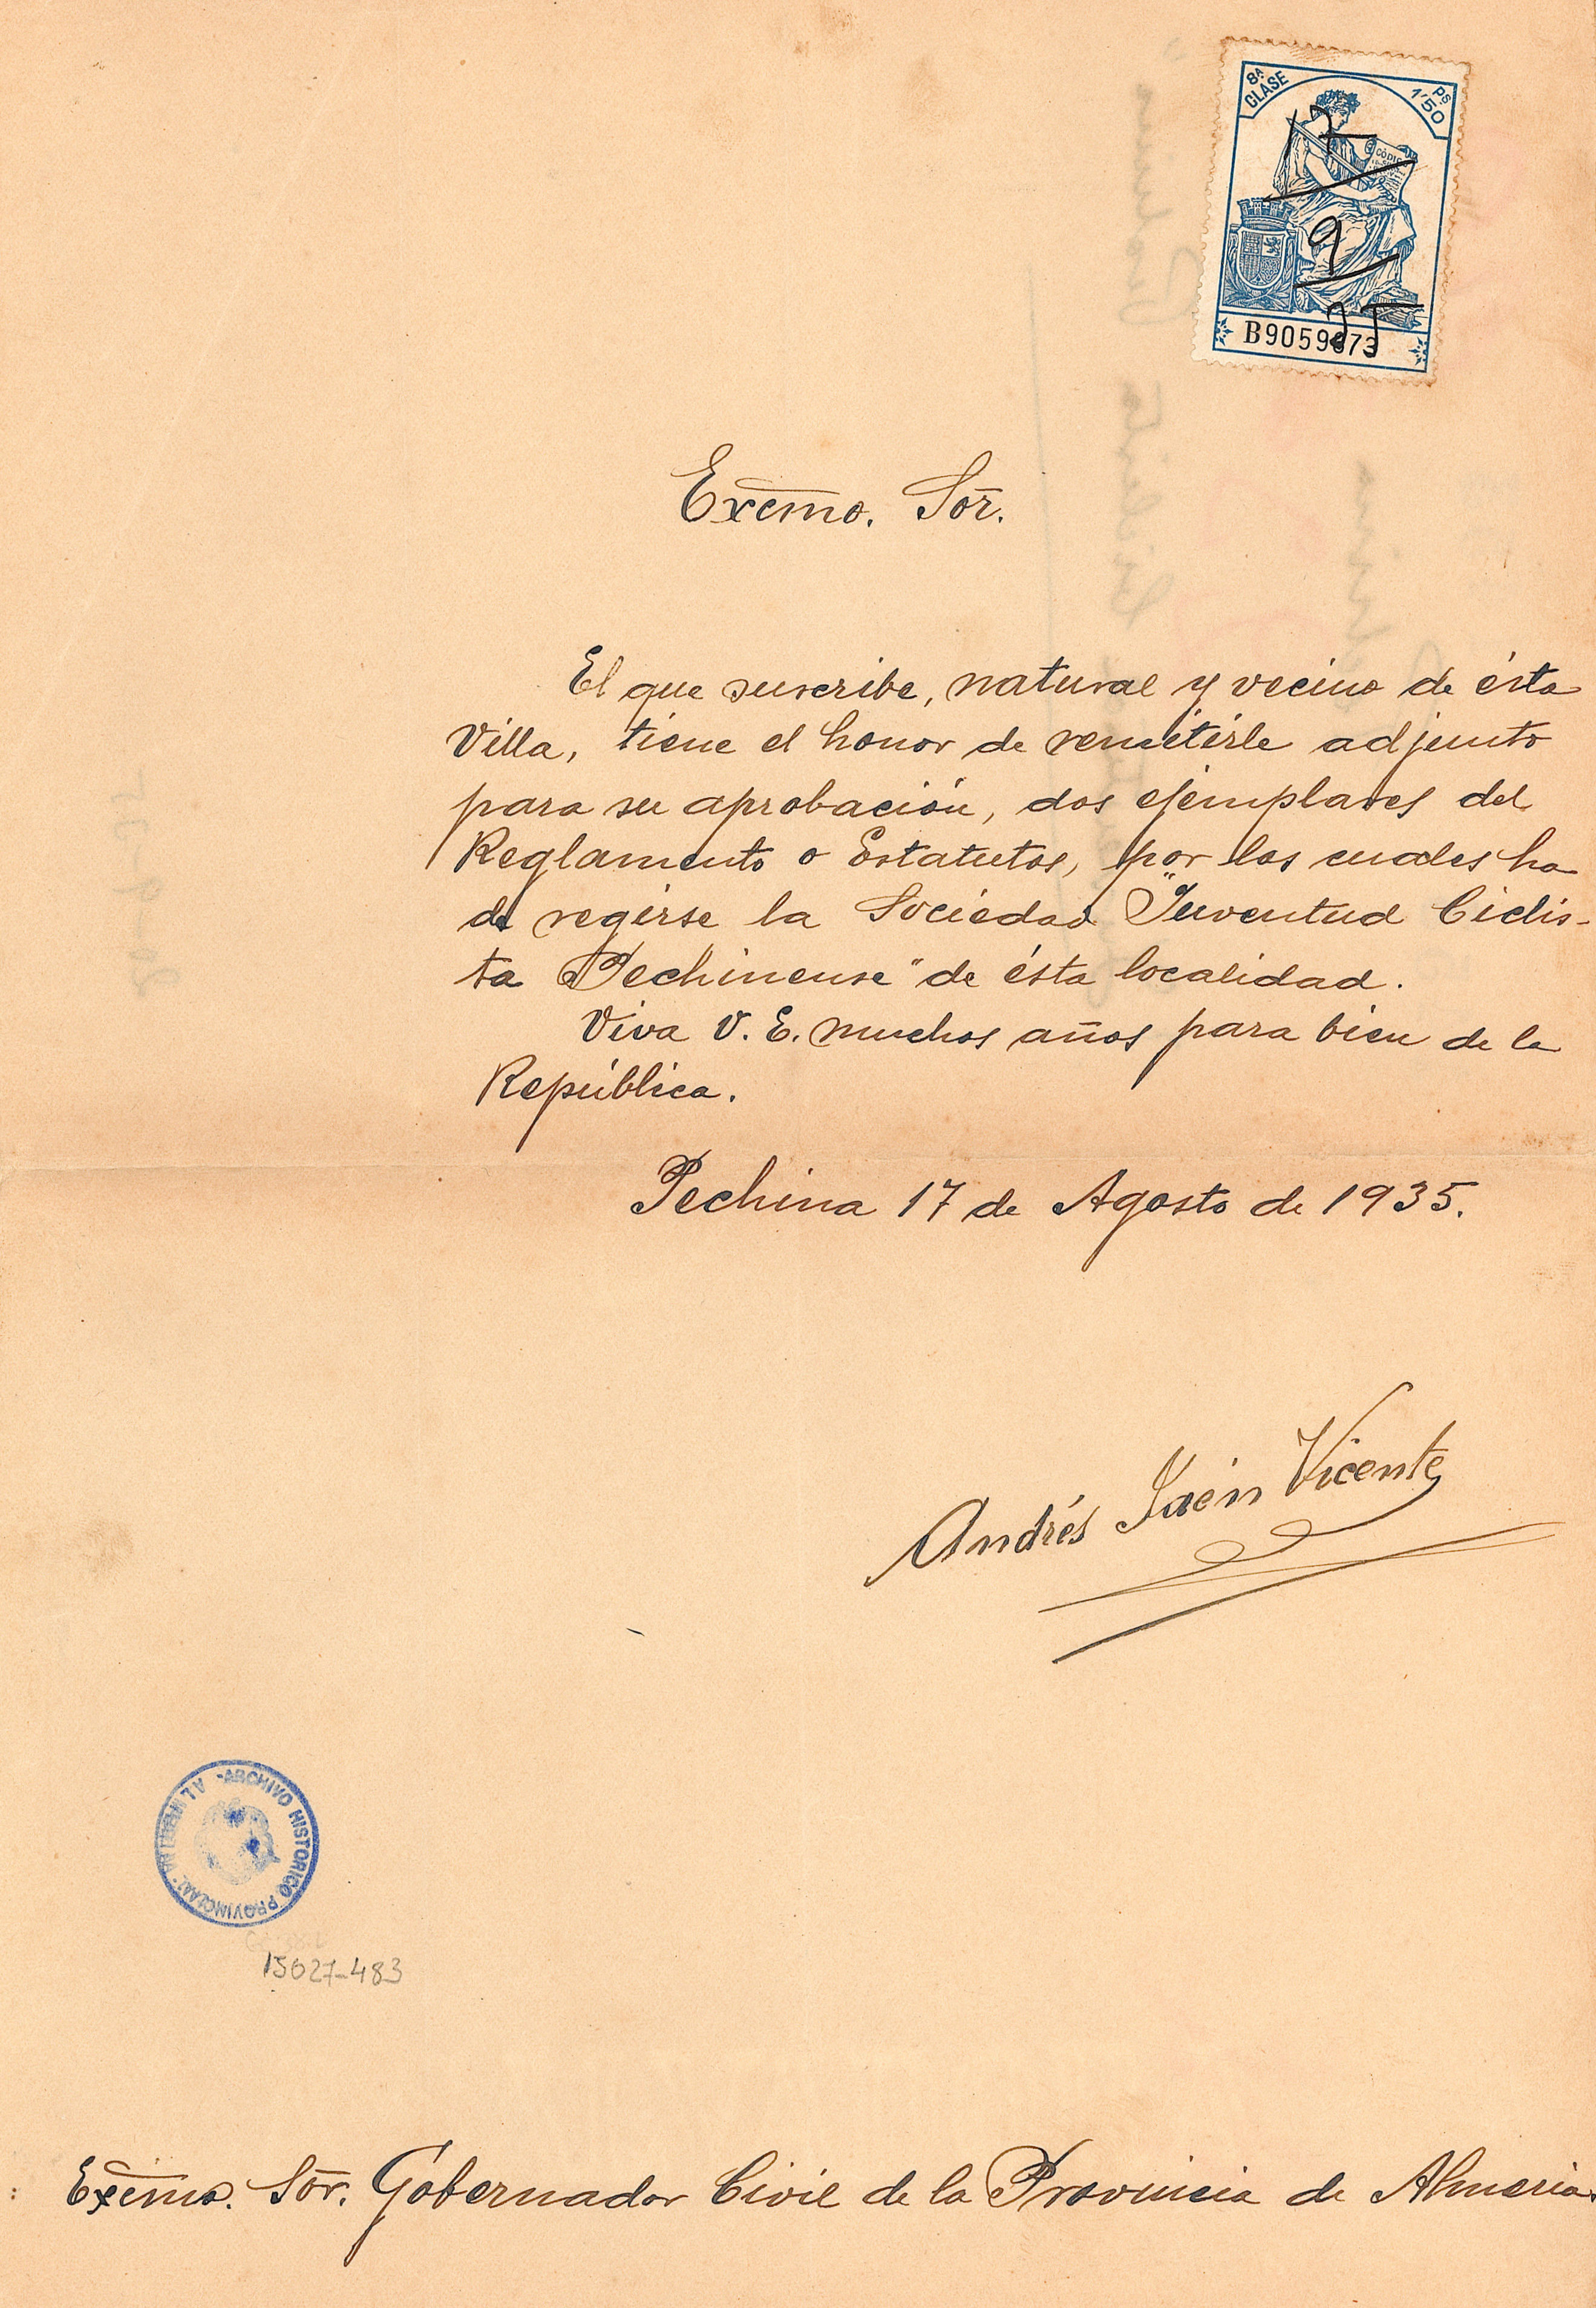 8ª CLASE
Ps 1'50
17
9
35
B9059873
Excmo. Sor.
El que suscribe, natural y vecino de ésta
Villa, tiene el honor de remitirle adjunto
para su aprobación, dos ejemplares del
Reglamento o Estatutos, por los cuales ha
de regirse la Sociedad "Juventud Ciclis-
ta Pechinense" de ésta localidad.
Viva V. E. muchos años para bien de la
República.
Pechina 17 de Agosto de 1935.
Andrés Jaén Vicente
ARCHIVO HISTORICO PROVINCIAL ALMERIA
15027-483
Excmo. Sor. Gobernador Civil de la Provincia de Almeria.